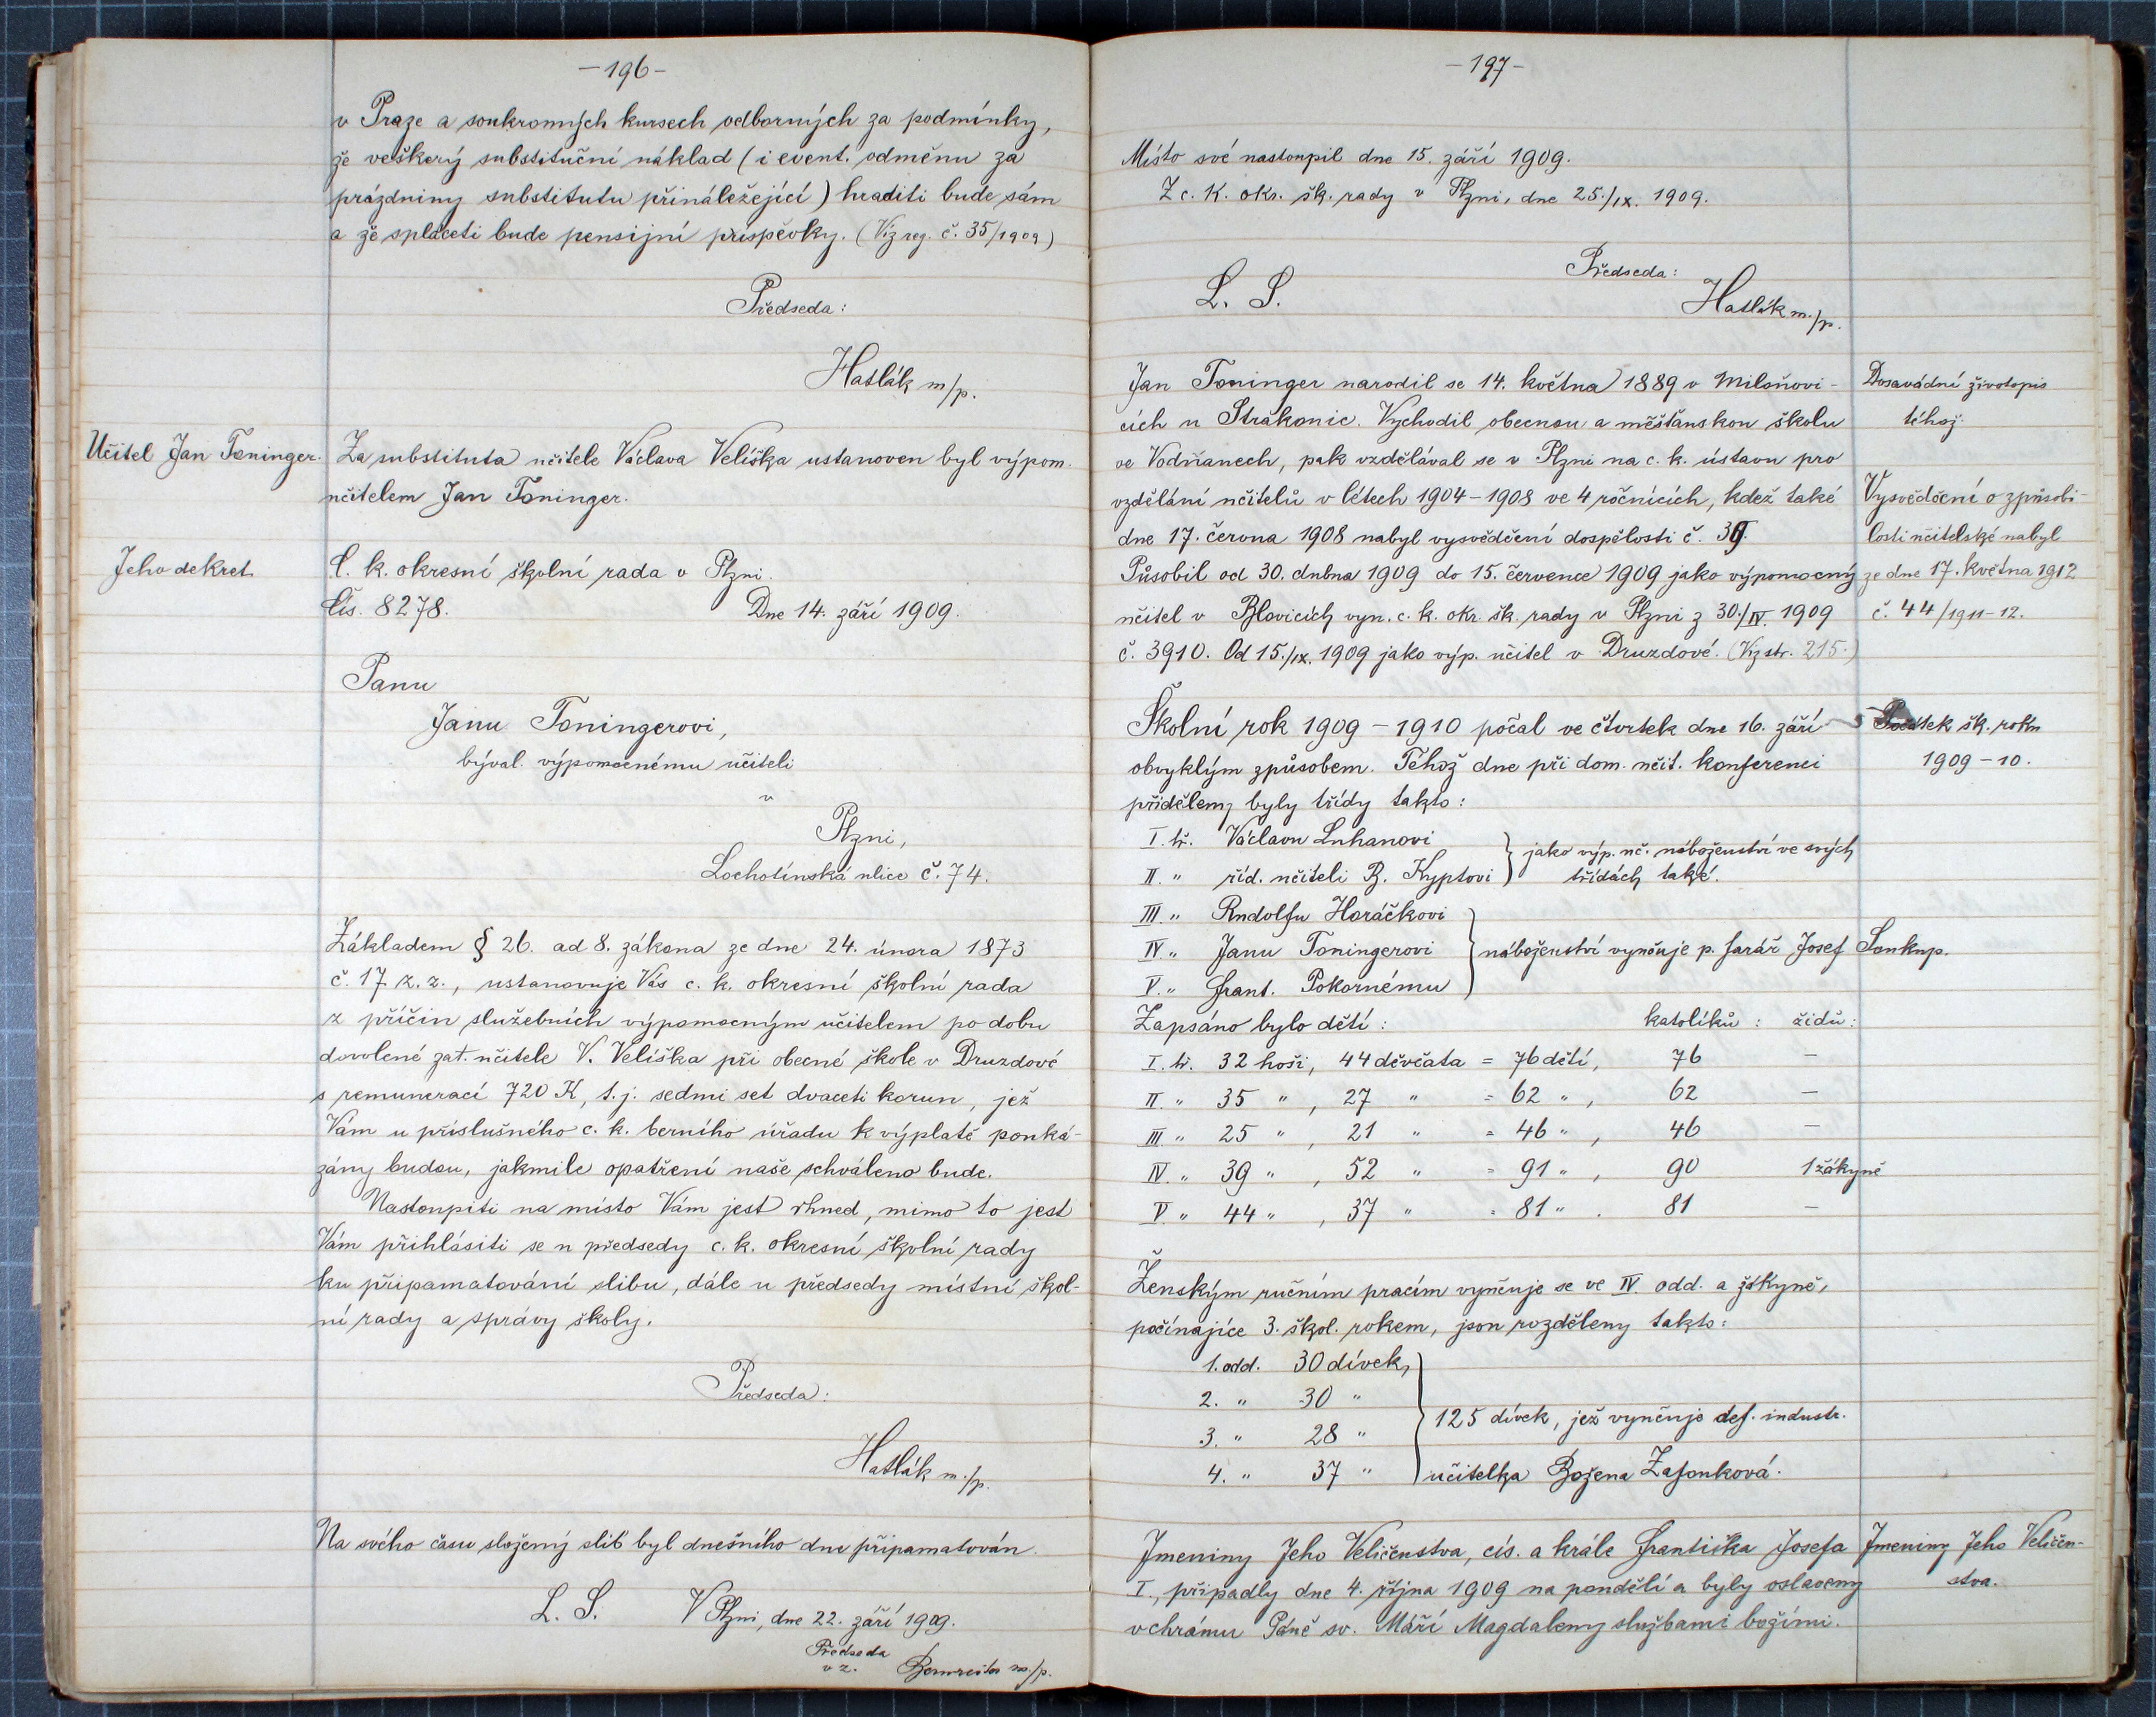 -196-
v Praze a soukromých kursech odborných za podmínky,
že veškerý substituční náklad (i event. odměnu za
prázdniny substitutu přináležející) hraditi bude sám
a že spláceti bude pensijní příspěvky. (Viz reg. č. 35/1909)
Předseda:
Hatlák m/p.
Učitel Jan Toninger.
Za substituta učitele Václava Velíška ustanoven byl výpom.
učitelem Jan Toninger.
Jeho dekret.
C. k. okresní školní rada v Plzni.
Čís. 8278. Dne 14. září 1909.
Panu
Janu Toningerovi,
býval. výpomocnému učiteli
v
Plzni,
Lochotínská ulice č. 74.
Základem § 26. ad 8. zákona ze dne 24. února 1873
č. 17 z. z., ustanovuje Vás c. k. okresní školní rada
z příčin služebních výpomocným učitelem po dobu
dovolené zat. učitele V. Velíška při obecné škole v Druzdové
s remunerací 720 K, t. j. sedmi set dvaceti korun, jež
Vám u příslušného c. k. berního úřadu k výplatě pouká-
zány budou, jakmile opatření naše schváleno bude.
Nastoupiti na místo Vám jest ihned, mimo to jest
Vám přihlásiti se u předsedy c. k. okresní školní rady
ku připamatování slibu, dále u předsedy místní škol-
ní rady a správy školy.
Předseda:
Hatlák m./p.
Na svého času složený slib byl dnešního dne připamatován.
L. S. V Plzni, dne 22. září 1909.
Předseda
v z. m/p.
-197-
Místo své nastoupil dne 15. září 1909.
Z c. k. okr. šk. rady v Plzni, dne 25./IX. 1909.
Předseda:
L. S. Hatlák m./p.
Jan Toninger narodil se 14. května 1889 v Miloňovi-
cích u Strakonic. Vychodil obecnou a měšťanskou školu
ve Vodňanech, pak vzdělával se v Plzni na c. k. ústavu pro
vzdělání učitelů v létech 1904-1908 ve 4 ročnících, kdež také
dne 17. června 1908 nabyl vysvědčení dospělosti č. 39.
Působil od 30. dubna 1909 do 15. července 1909 jako výpomocný
učitel v Blovicích vyn. c. k. okr. šk. rady v Plzni z 30./IV. 1909
č. 3910. Od 15./IX. 1909 jako výp. učitel v Druzdové. (Viz str. 215.)
Dosavádní životopis
téhož.
Vysvědčení o způsobi-
losti učitelské nabyl
ze dne 17. května 1912
č. 44/1911-12.
Školní rok 1909-1910 počal ve čtvrtek dne 16. září
obvyklým způsobem. Téhož dne při dom. učit. konferenci
přiděleny byly třídy takto:
Počátek šk. roku
1909-10.
I. tř. Václavu Luhanovi
II. " říd. učiteli B. Kyptovi } jako výp. uč. náboženství ve svých
třídách také.
III. " Rudolfu Horáčkovi
IV. " Janu Toningerovi } náboženství vyučuje p. farář Josef Soukup.
V. " Frant. Pokornému
Zapsáno bylo dětí: katolíků: židů:
I. tř. 32 hoši, 44 děvčata = 76 dětí, 76 –
II. " 35 " , 27 " = 62 " , 62 –
III. " 25 " , 21 " = 46 " , 46 –
IV. " 39 " , 52 " = 91 " , 90 1 žákyně
V. " 44 " , 37 " = 81 " . 81 –
Ženským ručním pracím vyučuje se ve IV. odd. a žákyně,
počínajíce 3. škol. rokem, jsou rozděleny takto:
1. odd. 30 dívek,
2. " 30 "
3. " 28 " } 125 dívek, jež vyučuje def. industr.
4. " 37 " učitelka Božena Zafouková.
Jmeniny Jeho Veličenstva, cís. a krále Františka Josefa
I., připadly dne 4. října 1909 na pondělí a byly oslaveny
v chrámu Páně sv. Máří Magdaleny službami božími.
Jmeniny Jeho Veličen-
stva.